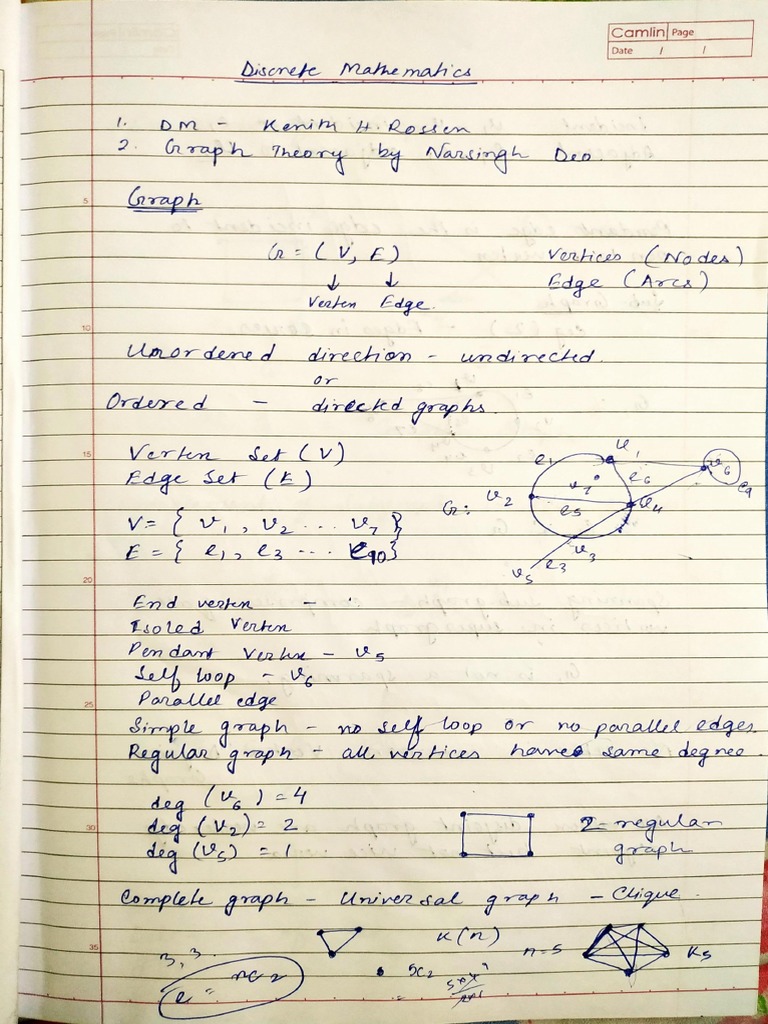 Camlin Page
Date / /
Discrete Mathematics
1. DM - Kenith H. Rossen
2. Graph Theory by Narsingh Deo.
Graph
G = (V, E) Vertices (Nodes)
↓ ↓ Edge (Arcs)
Verten Edge.
Unordered direction - undirected.
or
Ordered - directed graphs.
Verten Set (V)
Edge Set (E)
G: v1 v2 v3 v4 v5 v6 v7 e1 e3 e5 e6 e9
V = { v1, v2 ... v7 }
E = { e1, e3 ... e10 }
End verten -
Isoled Verten
Pendant Vertex - v5
Self loop - v6
Parallel edge
Simple graph - no self loop or no parallel edges.
Regular graph - all vertices have same degree.
deg (v6) = 4
deg (v2) = 2 2-regular
deg (v5) = 1 graph
Complete graph - Universal graph - Clique.
K(n) n=5 K5
3, 3
e = nc2 5c2